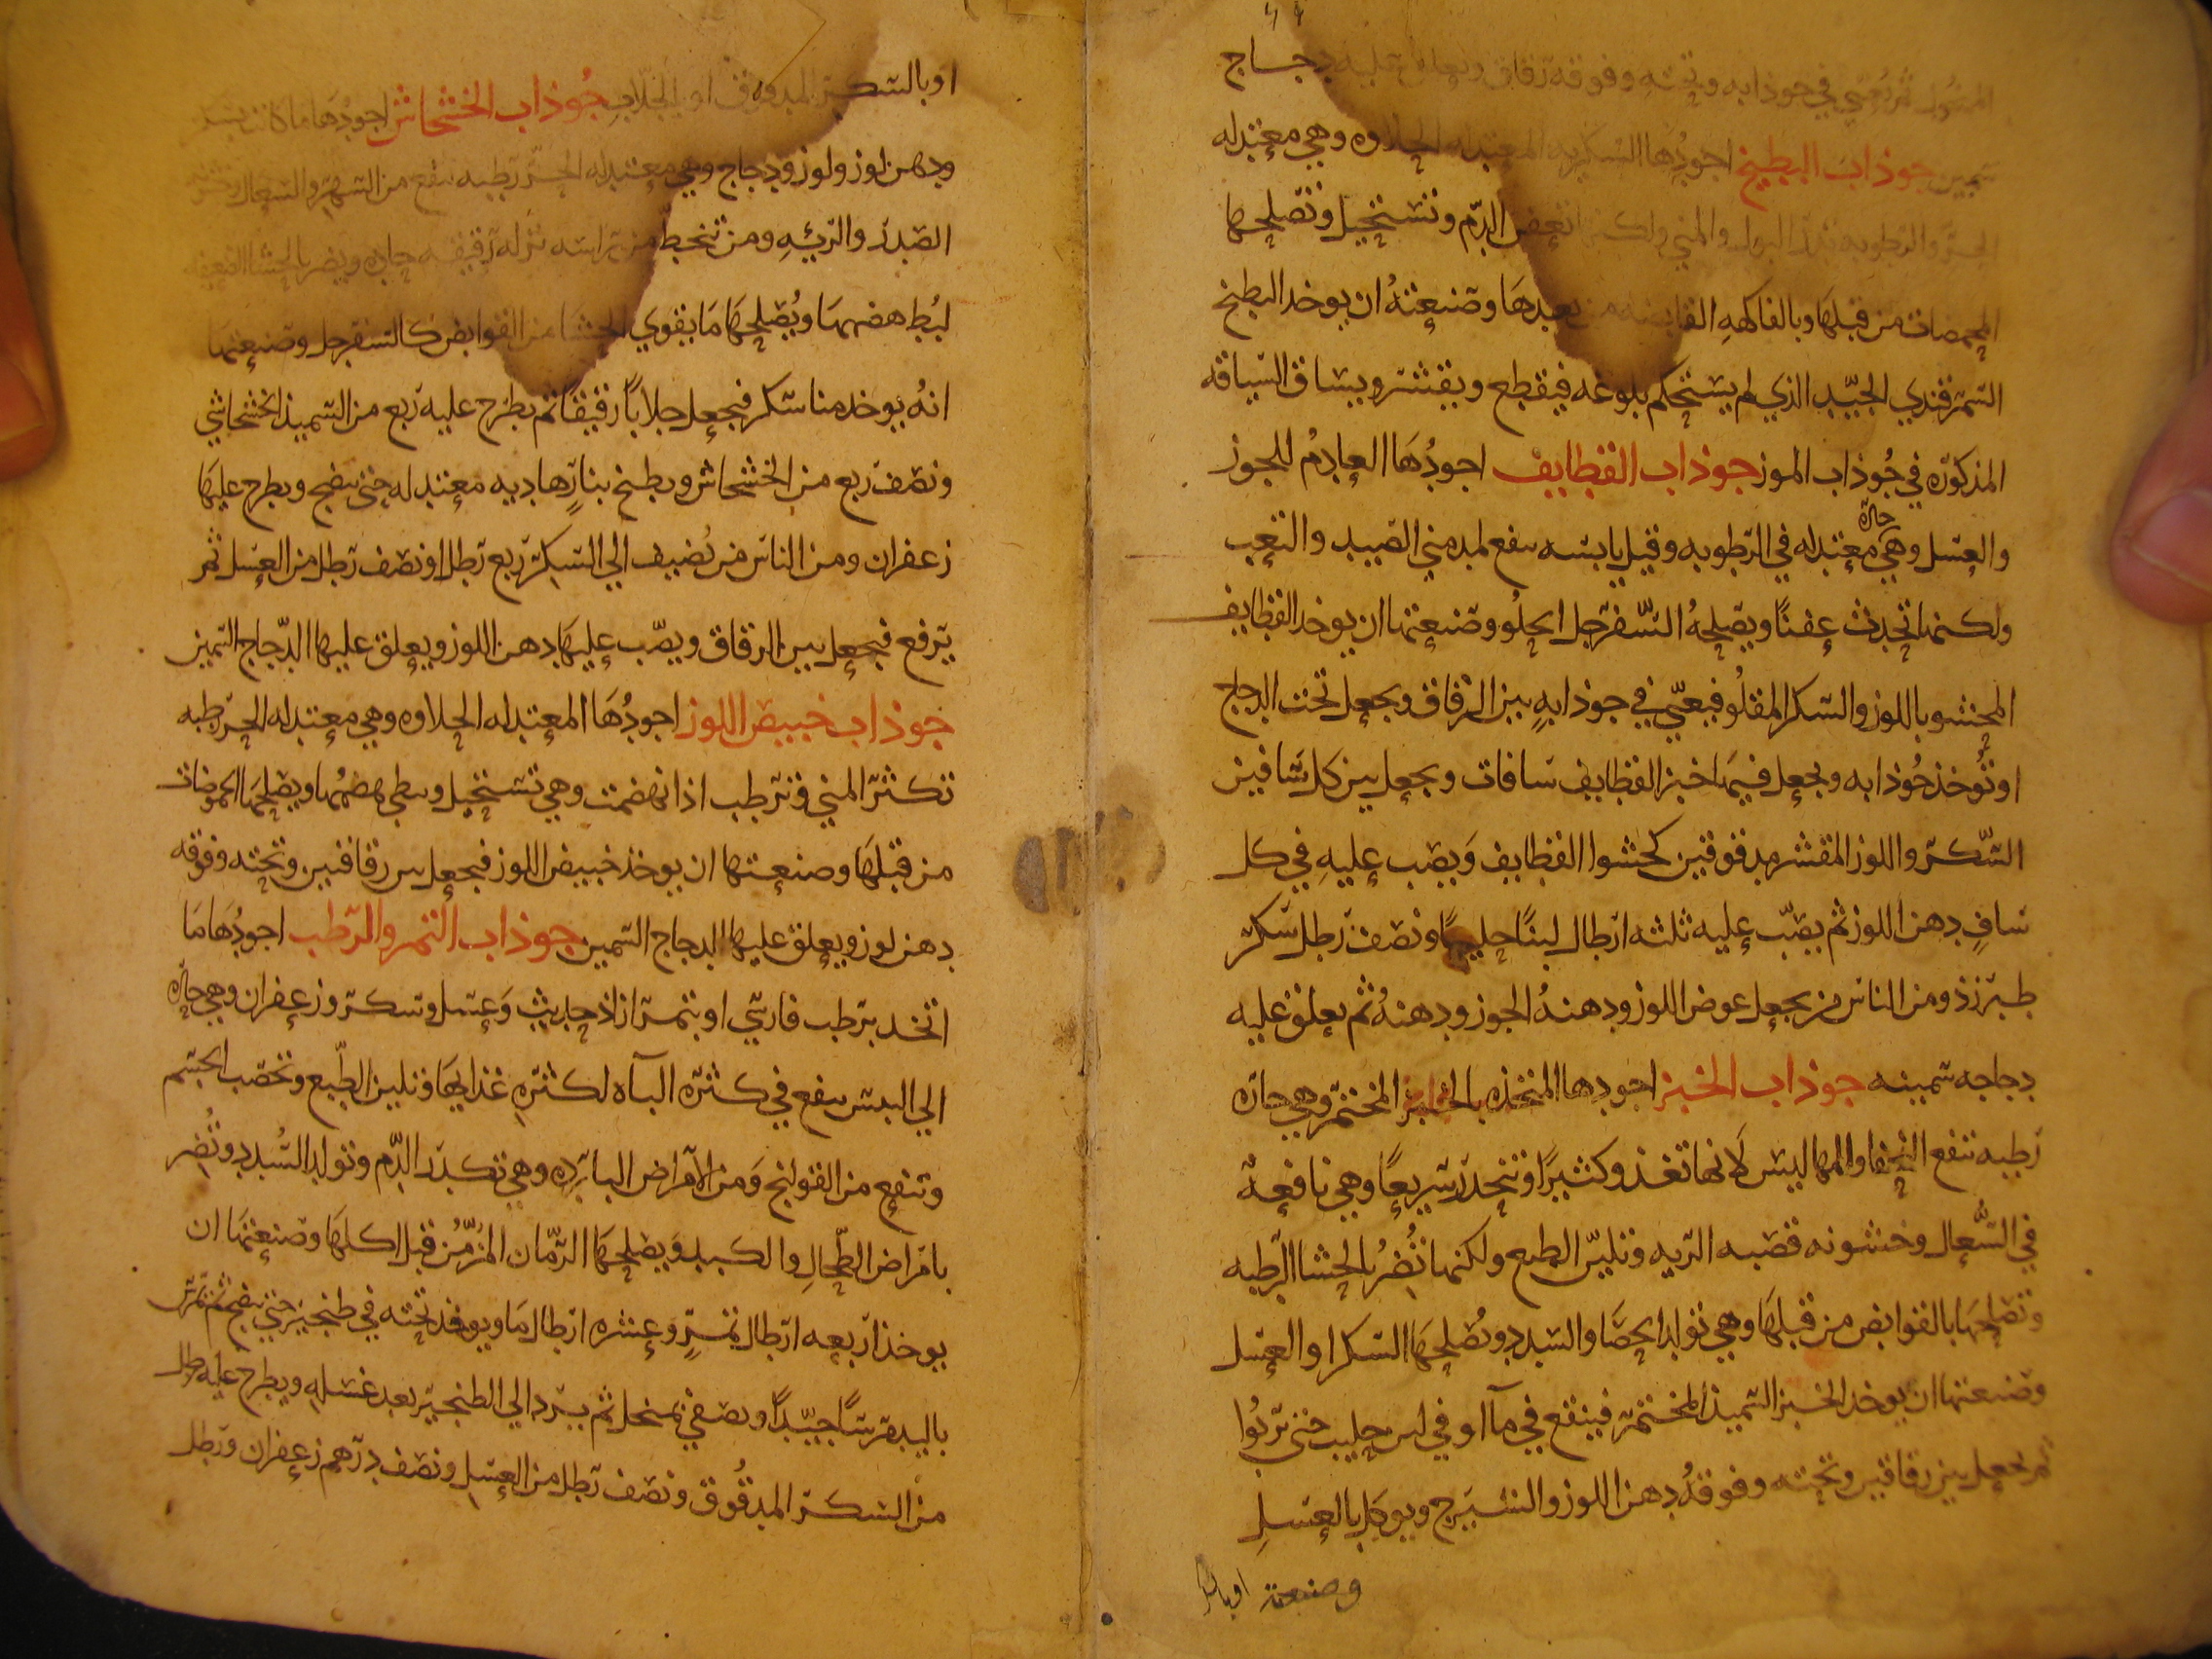 المتوكل ثم يعبي في جوذابه وتحته وفوقه رقاق ويعلق عليه دجاج
سمين جوذاب البطيخ اجودها السكريه المعتدله الحلاوه وهي معتدله
الحر والرطوبه تدر البول والمني ولكنها تعفن الدم وتستحيل وتصلحها
المحمضات من قبلها وبالفاكهه القابضه من بعدها وصنعته ان يوخد البطيخ
السمرقندي الجيد الذي لم يستحكم بلوغه فيقطع ويقشر ويساق السياقه
المذكوره في جوذاب الموز جوذاب القطايف اجودها العادم للجوز
والعسل وهي حاره معتدله في الرطوبه وقيل يابسه ينفع لمدمني الصيد والتعب
ولكنها تحدث عفنا ويصلحه السفرجل الحلو وصنعتها ان يوخد القطايف
المحشو باللوز والسكر المقلو فيعبي في جوذابه بين الرقاق ويجعل تحت الدجاج
او توخذ جوذابه ويجعل فيها خبز القطايف سافات ويجعل بين كل سافين
السكر واللوز المقشر مدقوقين كحشوا القطايف ويصب عليه في كل
ساف دهن اللوز ثم يصب عليه ثلثه ارطال لبنا حليبا ونصف رطل سكر
طبرزذ ومن الناس من يجعل عوض اللوز ودهنه الجوز ودهنه ثم يعلق عليه
دجاجه سمينه جوذاب الخبز اجودها المتخذه بالخبز المختمر وهي حاره
رطبه تنفع النحفا والمهاليس لانها تغذو كثيرا وتنحدر سريعا وهي نافعة
في السعال وخشونه قصبه الريه وتلين الطبع ولكنها تضر بالحشا الرطبه
وتصلحها بالقوابض من قبلها وهي تولد الحصا والسدد وتصلحها السكر او العسل
وصنعتها ان يوخد الخبز السميذ المختمر فينقع في مآ او في لبن حليب حتى تربوا
ثم يجعل بين رقاقتين وتحته وفوقه دهن اللوز والشيرج ويوكل بالعسل
اوبالسكر
او بالسكر المدقوق او بالجلاب جوذاب الخشخاش اجودها ما كانت بسكر
ودهن لوز ولوز ودجاج وهي معتدله الحر رطبه تنفع من السهر والسعال وخشونه
الصدر والرئه ومن تنحط من راسه نزله رقيقه حاره ويضر بالحشا الضعيفه
لبط هضمها ويصلحها ما يقوي الحشا من القوابض كالسفرجل وصنعتها
انه يوخد منا سكر فيجعل جلابا رقيقا ثم يطرح عليه ربع من السميذ الخشخاشي
ونصف ربع من الخشخاش ويطبخ بنار هاديه معتدله حتى ينضج ويطرح عليها
زعفران ومن الناس من يضيف الي السكر ربع رطل او نصف رطل من العسل ثم
يرفع فيجعل بين الرقاق ويصب عليها دهن اللوز ويعلق عليها الدجاج السمين
جوذاب خبيص اللوز اجودها المعتدله الحلاوه وهي معتدله الحر رطبه
تكثر المني وترطب اذا انهضمت وهي تستحيل وبطي هضمها ويصلحها الحموضات
من قبلها وصنعتها ان يوخذ خبيص اللوز فيجعل بين رقاقتين وتحته وفوقه
دهن لوز ويعلق عليها الدجاج السمين جوذاب التمر والرطب اجودها ما
اتخد برطب فارسي او بتمر ازاد حديث وعسل وسكر وزعفران وهي حاره
الي اليبس ينفع في كثره الباه لكثره غذايها وتلين الطبع وتخصب الجسم
وتنفع من القولنج ومن الامراض البارده وهي تكدر الدم وتولد السدد وتضر
بامراض الطحال والكبد ويصلحها الرمان المز من قبل اكلها وصنعتها ان
يوخذ اربعه ارطال تمر وعشره ارطال ما ويوقد تحته في طنجير حتى ينضج ثم تمرس
باليد مرسا جيدا ويصفي بمنخل ثم يرد الي الطنجير بعد غسله ويطرح عليه رطل
من السكر المدقوق ونصف رطل من العسل ونصف درهم زعفران ورطل